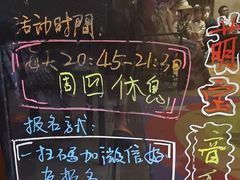 活动时間:
每天20:45-21:30
周四休息
报名方式:
一扫码加微信好
友报名
萌宝
音